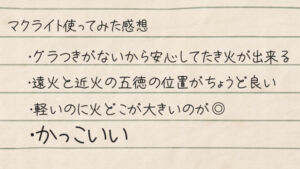 マクライト使ってみた感想
・グラつきがないから安心してたき火が出来る
・遠火と近火の五徳の位置がちょうど良い
・軽いのに火どこが大きいのが◎
・かっこいい